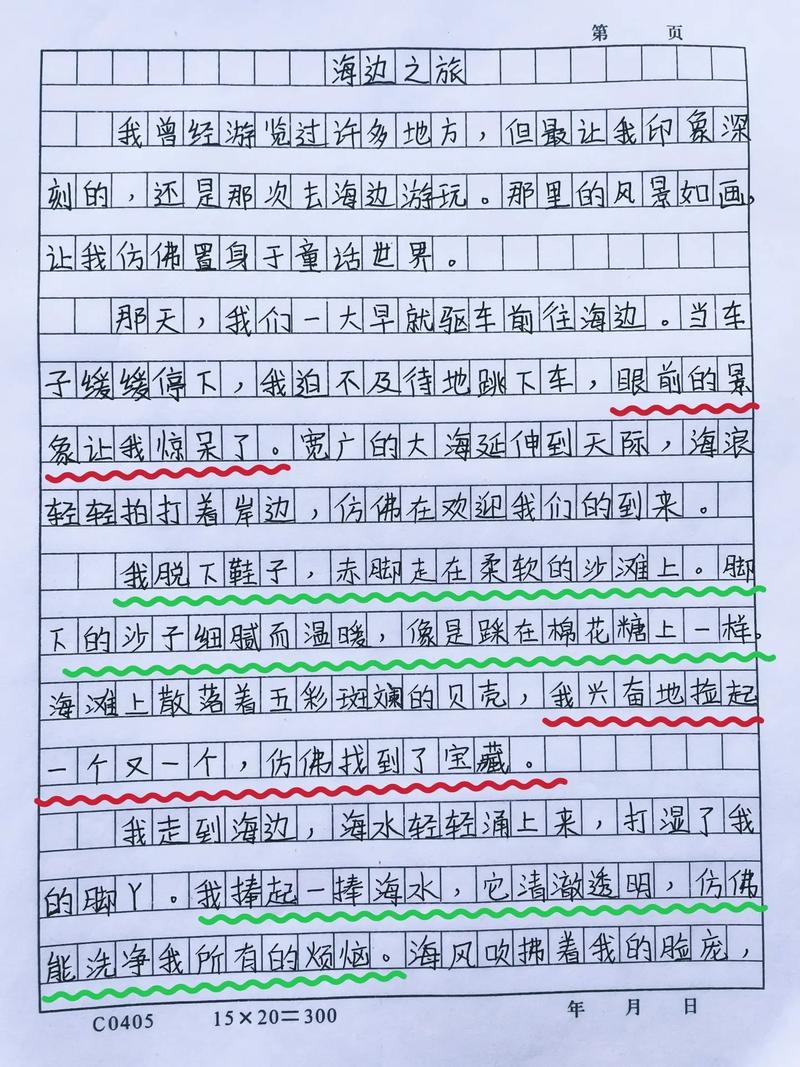 第 页
海边之旅
我曾经游览过许多地方，但最让我印象深
刻的，还是那次去海边游玩。那里的风景如画，
让我仿佛置身于童话世界。
那天，我们一大早就驱车前往海边。当车
子缓缓停下，我迫不及待地跳下车，眼前的景
象让我惊呆了。宽广的大海延伸到天际，海浪
轻轻拍打着岸边，仿佛在欢迎我们的到来。
我脱下鞋子，赤脚走在柔软的沙滩上。脚
下的沙子细腻而温暖，像是踩在棉花糖上一样。
海滩上散落着五彩斑斓的贝壳，我兴奋地捡起
一个又一个，仿佛找到了宝藏。
我走到海边，海水轻轻涌上来，打湿了我
的脚丫。我捧起一捧海水，它清澈透明，仿佛
能洗净我所有的烦恼。海风吹拂着我的脸庞，
C0405 15×20=300 年 月 日